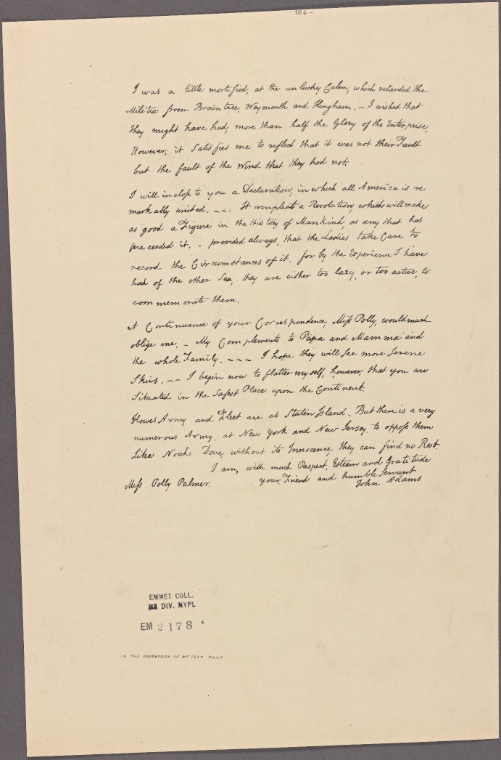 - 102 -
I was a little mortified, at the unlucky Calm, which retarded the
Militia from Braintree, Weymouth and Hingham. - I wished that
they might have had more than half the Glory of the Enterprise,
However, it satisfies me to reflect that it was not their Fault
but the fault of the Wind that they had not.
I will inclose to you a Declaration, in which all America is re
markably united. - - - It compleats a Revolution, which will make
as good a Figure in the History of Mankind, as any that has
preceeded it. - provided always, that the Ladies take Care to
record the Circumstances of it, for by the Experience I have
had of the other Sex, they are either too lazy, or too active, to
commemorate them.
A Continuance of your Correspondence, Miss Polly, would much
oblige me. - My Compliments to Papa and Mamma and
the whole Family. - - - I hope they will see more serene
Skies. - - I begin now to flatter myself, however, that you are
situated in the safest Place upon the Continent.
Howes Army and Fleet are at Staten Island. But there is a very
numerous Army, at New York and New Jersey, to oppose them
Like Noahs Dove, without its Innocence, they can find no Rest.
I am, with much Respect, Esteem and Gratitude
your Friend and humble servant
Miss Polly Palmer. John Adams
EMMET COLL.
DIV. NYPL
EM 2178
IN THE POSSESSION OF